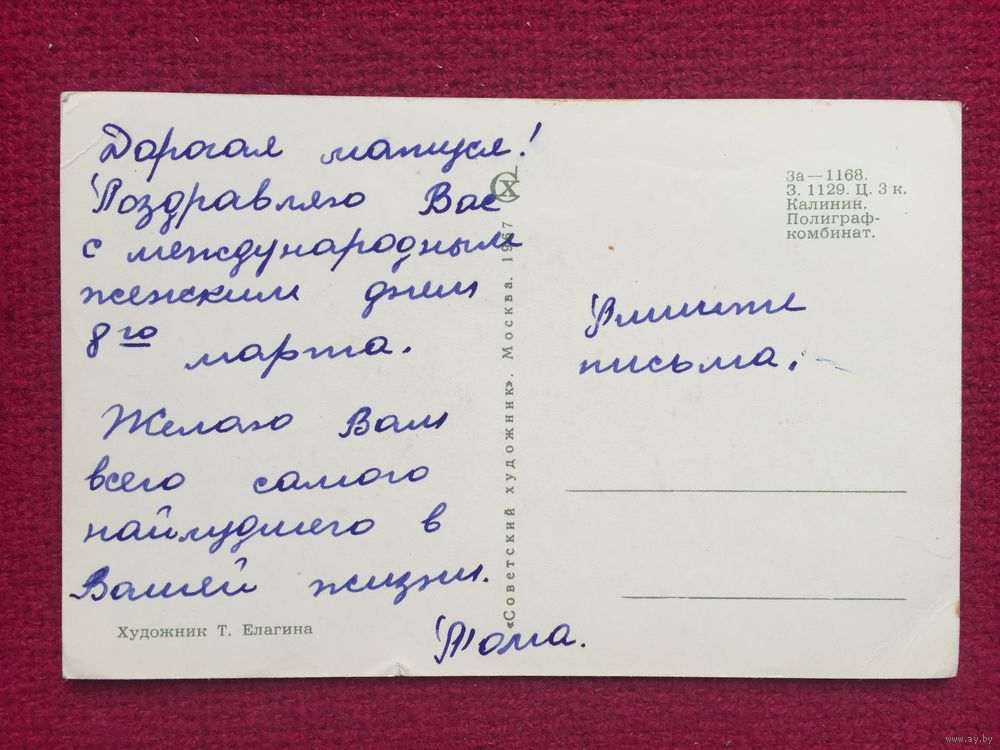 Дорогая мамуся!
Поздравляю Вас
с международным
женским днем
8го марта.
Желаю Вам
всего самого
найлудшего в
Вашей жизни.
Тома.
Художник Т. Елагина
«Советский художник». Москва. 1967
СХ
За—1168.
З. 1129. Ц. 3 к.
Калинин.
Полиграф-
комбинат.
Пишите
письма.
www.ay.by